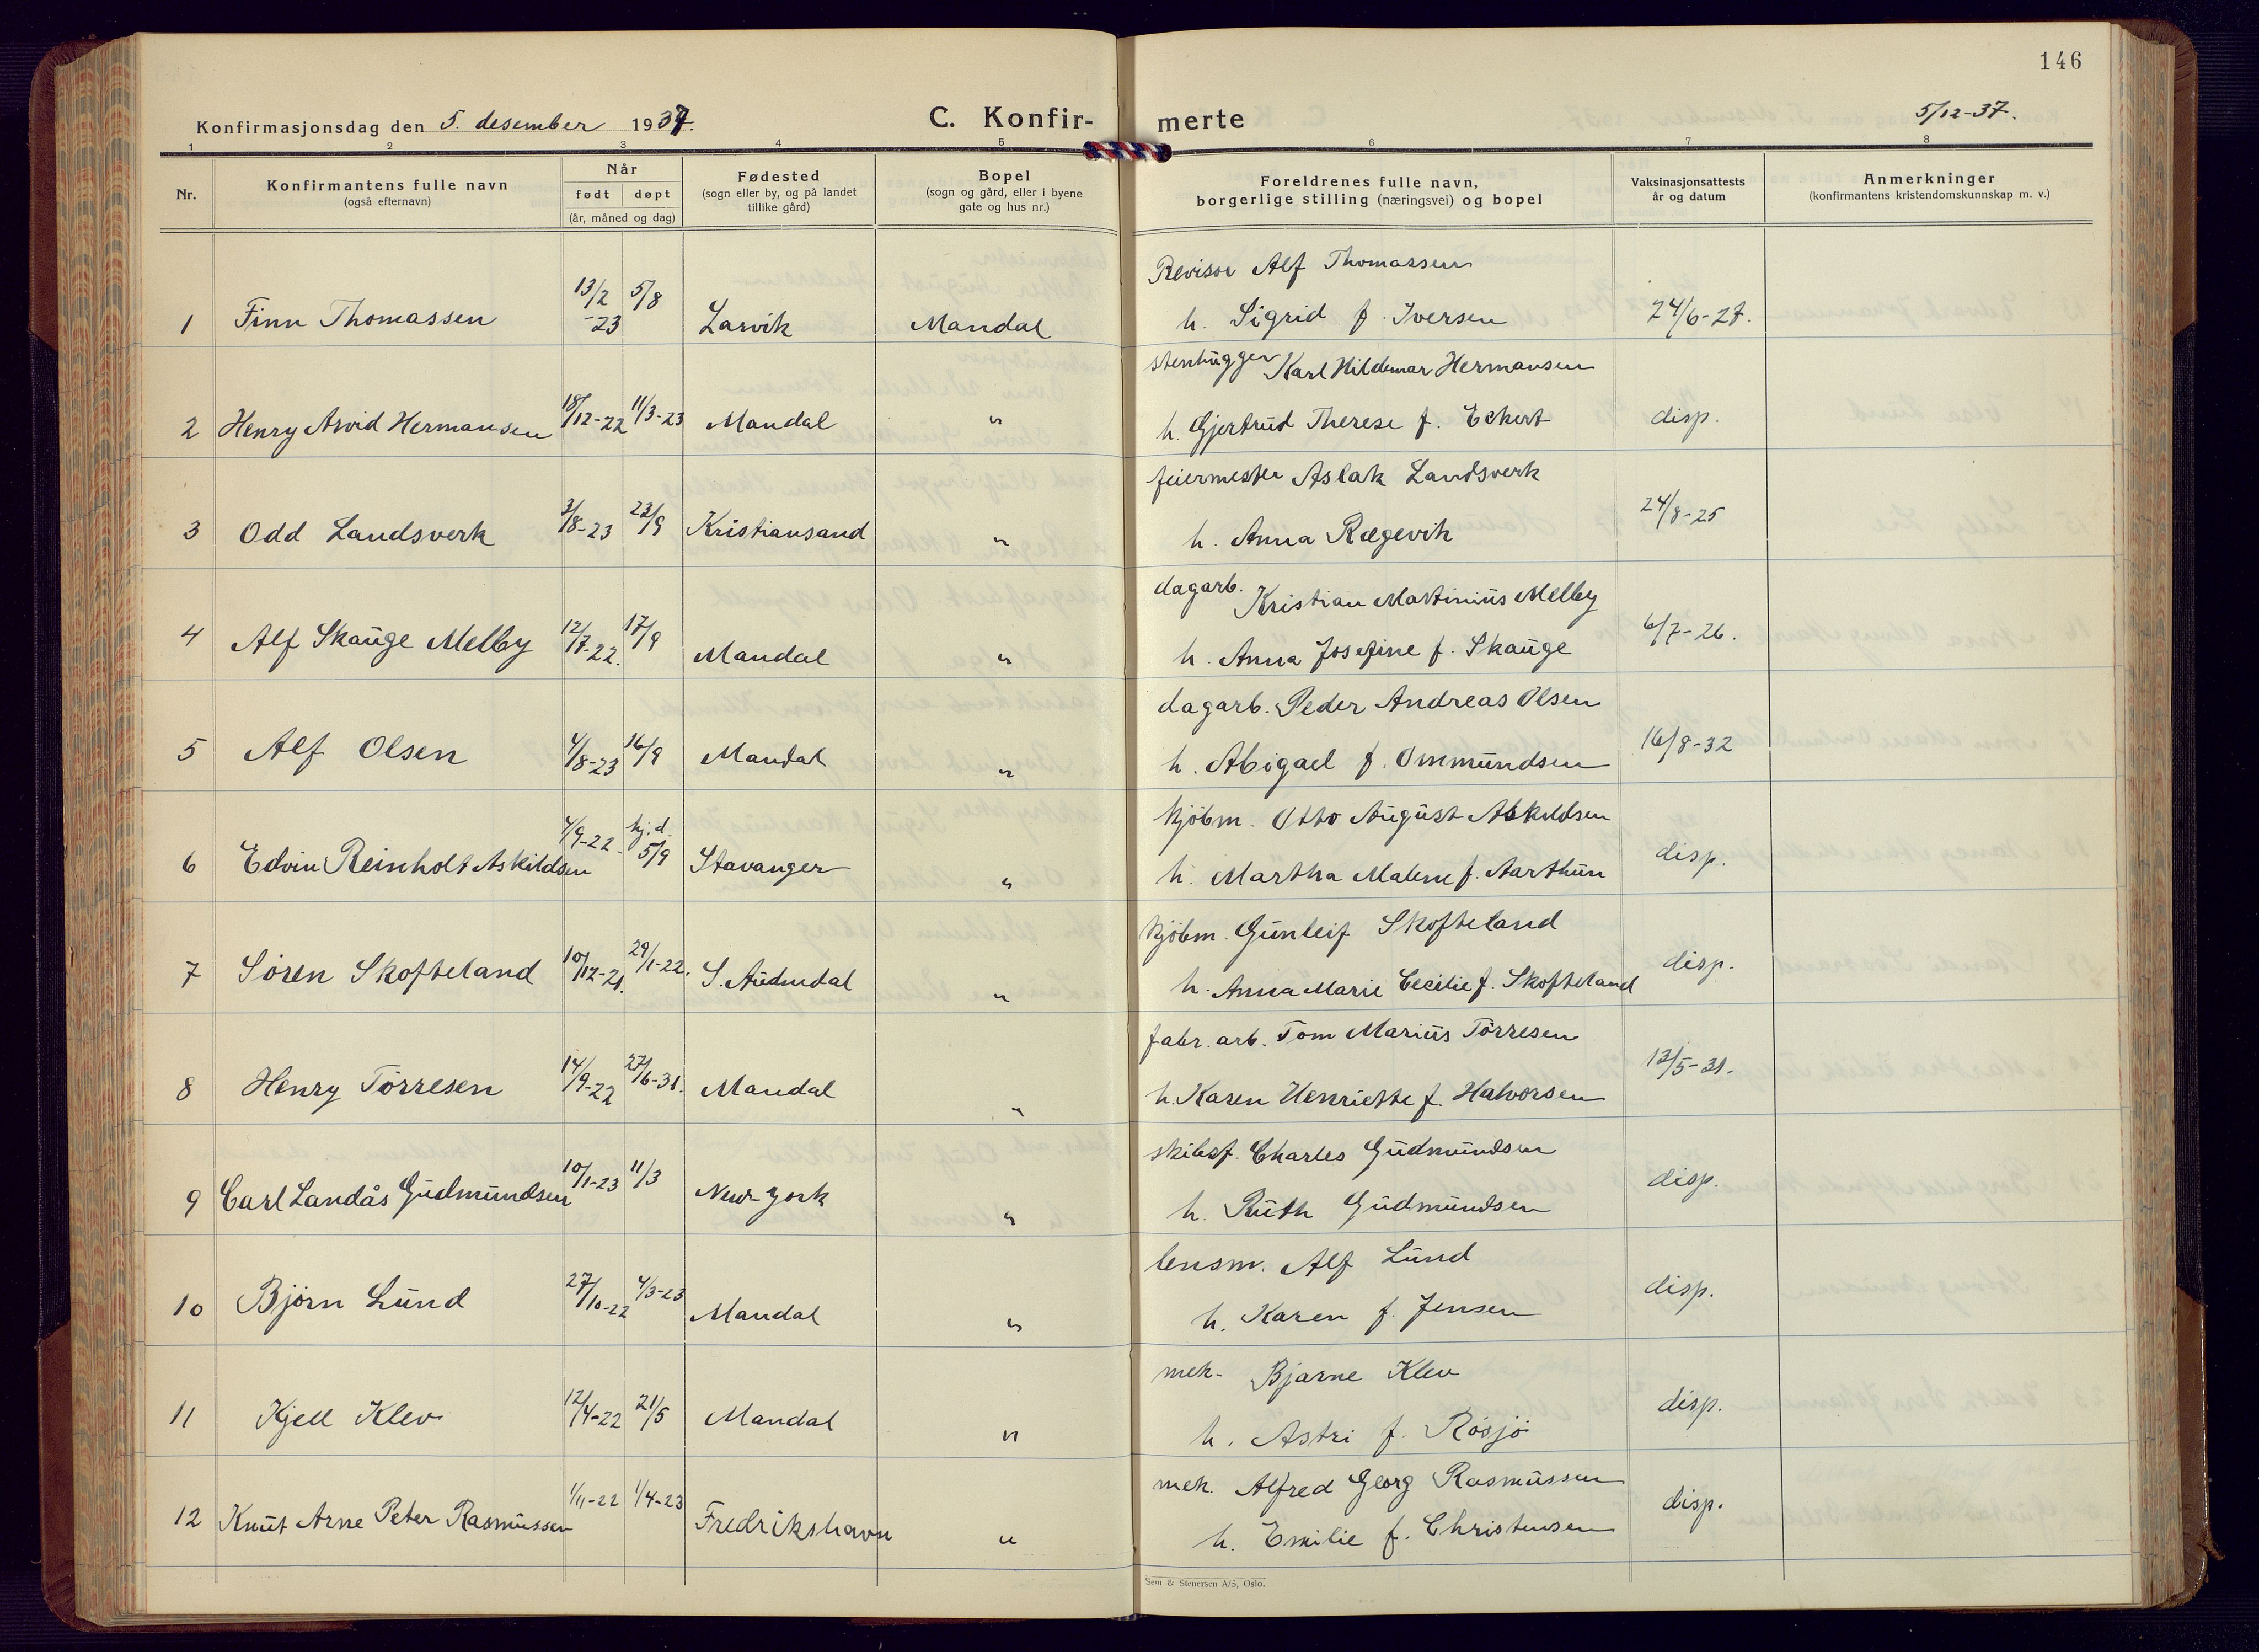 146
Konfirmasjonsdag den 5. desember 1937.
C. Konfir-
merte
5/12-37.
1 2 3 4 5 6 7 8
Nr.
Konfirmantens fulle navn
(også efternavn)
Når
født døpt
(år, måned og dag)
Fødested
(sogn eller by, og på landet
tillike gård)
Bopel
(sogn og gård, eller i byene
gate og hus nr.)
Foreldrenes fulle navn,
borgerlige stilling (næringsvei) og bopel
Vaksinasjonsattests
år og datum
Anmerkninger
(konfirmantens kristendomskunnskap m. v.)
Revisor Alf Thomassen
1 Finn Thomassen 13/2 -23 5/8 Larvik Mandal h. Sigrid f. Iversen 24/6-27.
stenhugger Karl Hildemar Hermansen
2 Henry Arvid Hermansen 18/12-22 11/3-23 Mandal " h. Gjertrud Therese f. Eckert disp.
feiermester Aslak Landsverk
3 Odd Landsverk 3/8-23 23/9 Kristiansand " h. Anna Rægevik 24/8-25
dagarb. Kristian Martinius Melby
4 Alf Skauge Melby 12/7-22. 17/9 Mandal " h. Anna Josefine f. Skauge 6/7-26.
dagarb. Peder Andreas Olsen
5 Alf Olsen 4/8-23 16/9 Mandal " h. Abigael f. Ommundsen 16/8-32
kjøbm. Otto August Askildsen
6 Edvin Reinholt Askildsen 4/9-22- hj.d. 5/9 Stavanger " h. Martha Malene f. Aarthun disp.
kjøbm. Gunleif Skofteland
7 Søren Skofteland 10/12-21. 29/1-22. S. Audnedal " h. Anna Marie Cecilie f. Skofteland disp.
fabr. arb. Tom Marius Tørresen
8 Henry Tørresen 14/9-22 27/6-31. Mandal " h. Karen Henriette f. Halvorsen 13/5-31.
skibsf. Charles Gudmundsen
9 Carl Landås Gudmundsen 10/1-23 11/3 New-York " h. Ruth Gudmundsen disp.
lensm. Alf Lund
10 Bjørn Lund 27/10-22 4/3-23 Mandal " h. Karen f. Jensen disp.
mek. Bjarne Klev
11 Kjell Klev 12/4-22 21/5 Mandal " h. Astri f. Røsjø disp.
mek. Alfred Georg Rasmussen
12 Knut Arne Peter Rasmussen 1/11-22 1/4-23 Fredrikshavn " h. Emilie f. Christensen disp.
Sem & Stenersen A/S, Oslo.